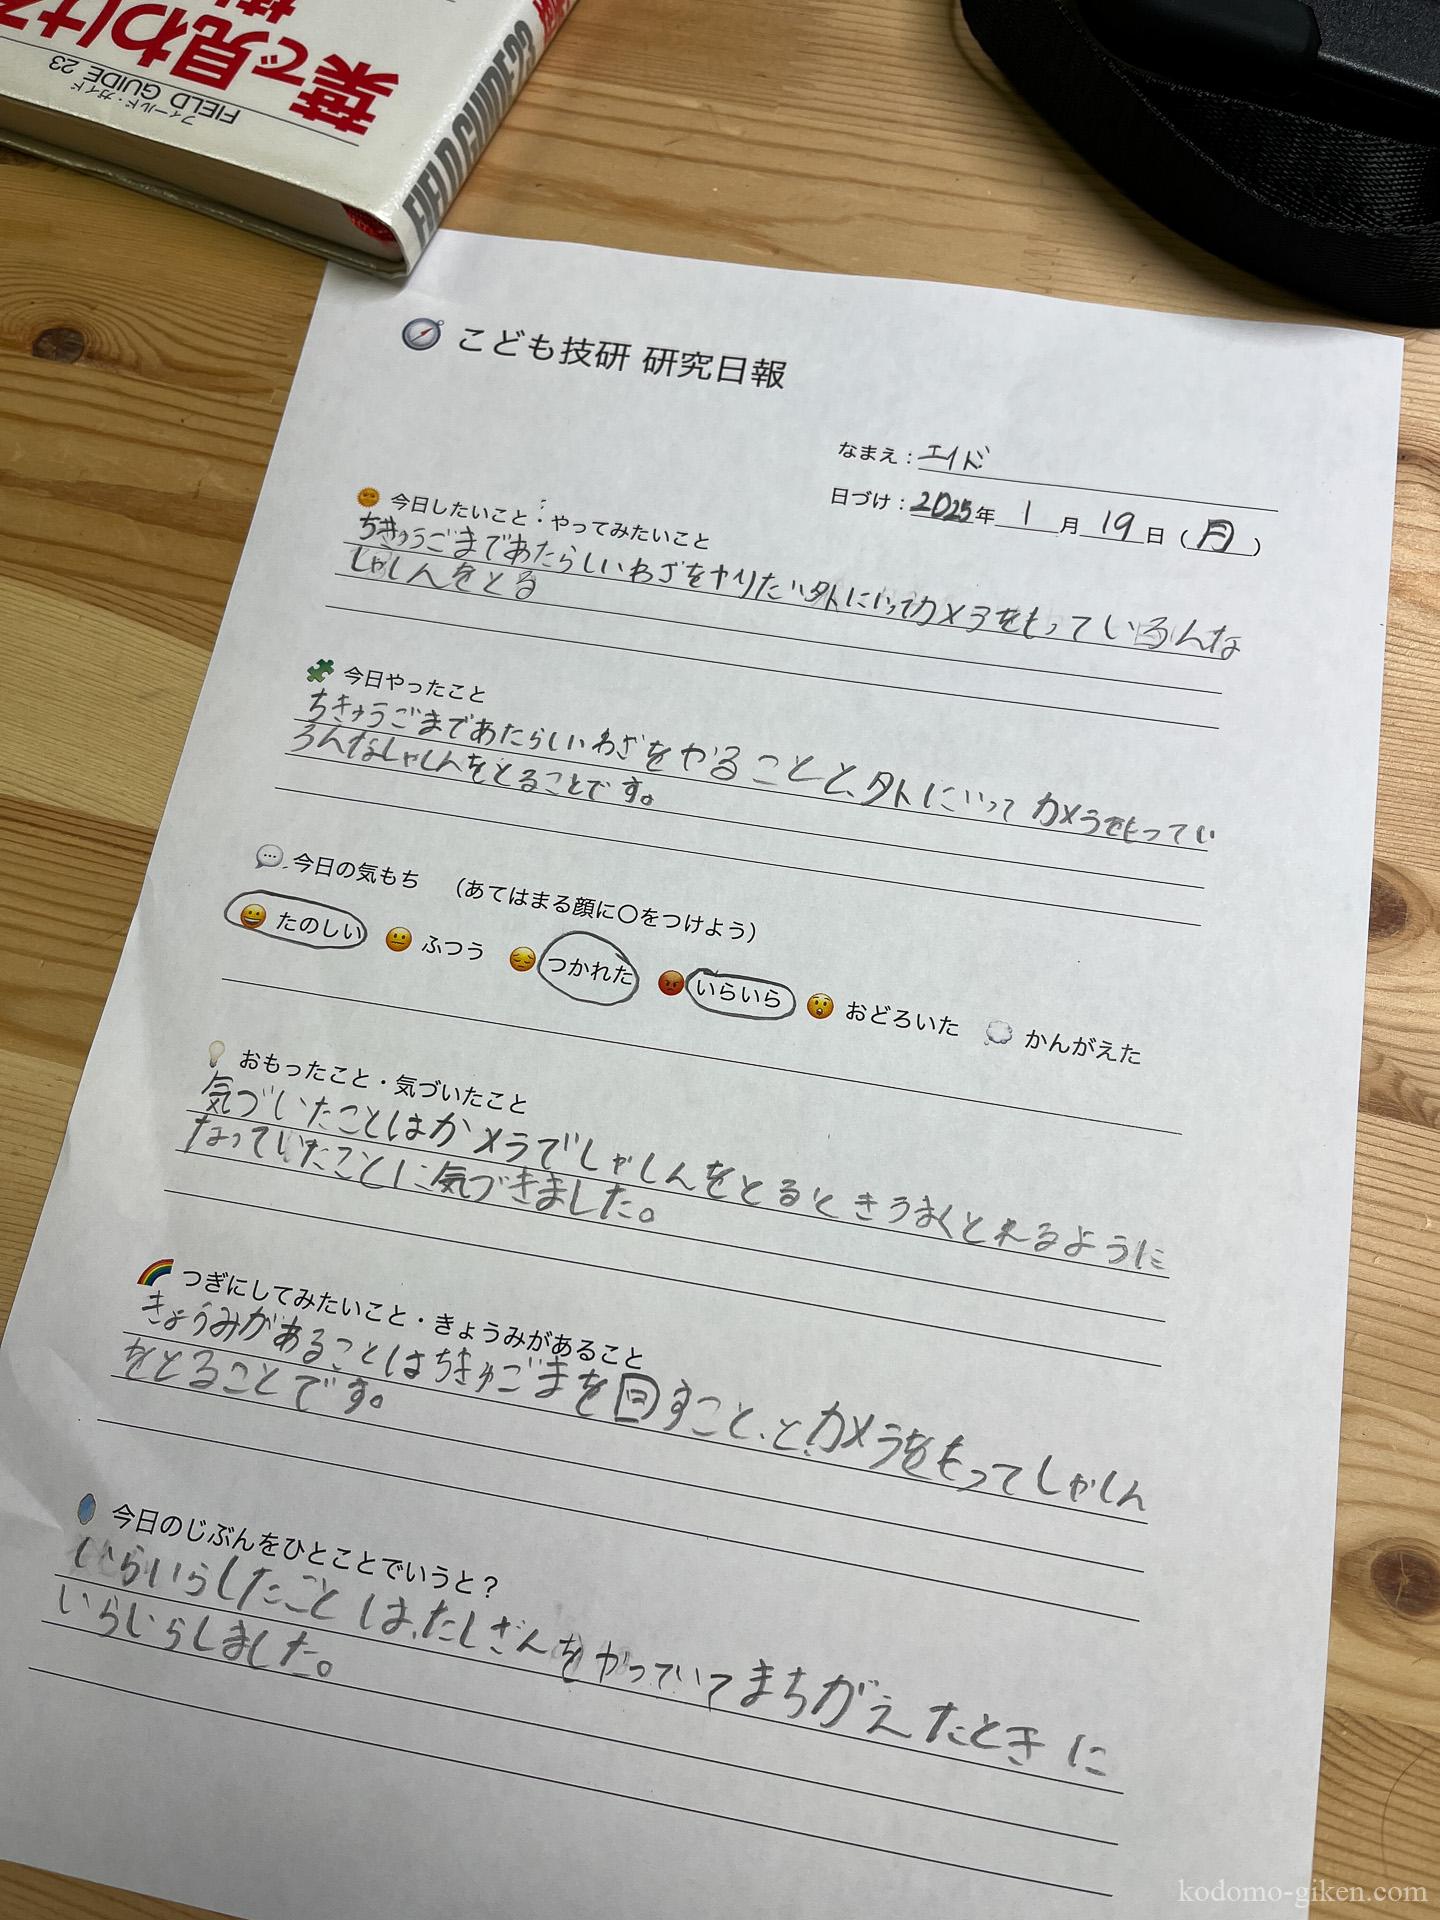 葉で見わける
フィールド・ガイド 23
FIELD GUIDE 23
FIELD GUIDE 23
こども技研 研究日報
なまえ：エイド
日づけ：2025年 1月 19日（月）
今日したいこと・やってみたいこと
ちきゅうごまであたらしいわざをやりたい外にいってカメラをもっていろんな
しゃしんをとる
今日やったこと
ちきゅうごまであたらしいわざをやることと、外にいってカメラをもってい
ろんなしゃしんをとることです。
今日の気もち （あてはまる顔に〇をつけよう）
たのしい ふつう つかれた いらいら おどろいた かんがえた
おもったこと・気づいたこと
気づいたことはカメラでしゃしんをとるときうまくとれるように
なっていたことに気づきました。
つぎにしてみたいこと・きょうみがあること
きょうみがあることはちきゅごまを回すこと、と、カメラをもってしゃしん
をとることです。
今日のじぶんをひとことでいうと？
いらいらしたことは、たしざんをやっていてまちがえたときに
いらいらしました。
kodomo-giken.com